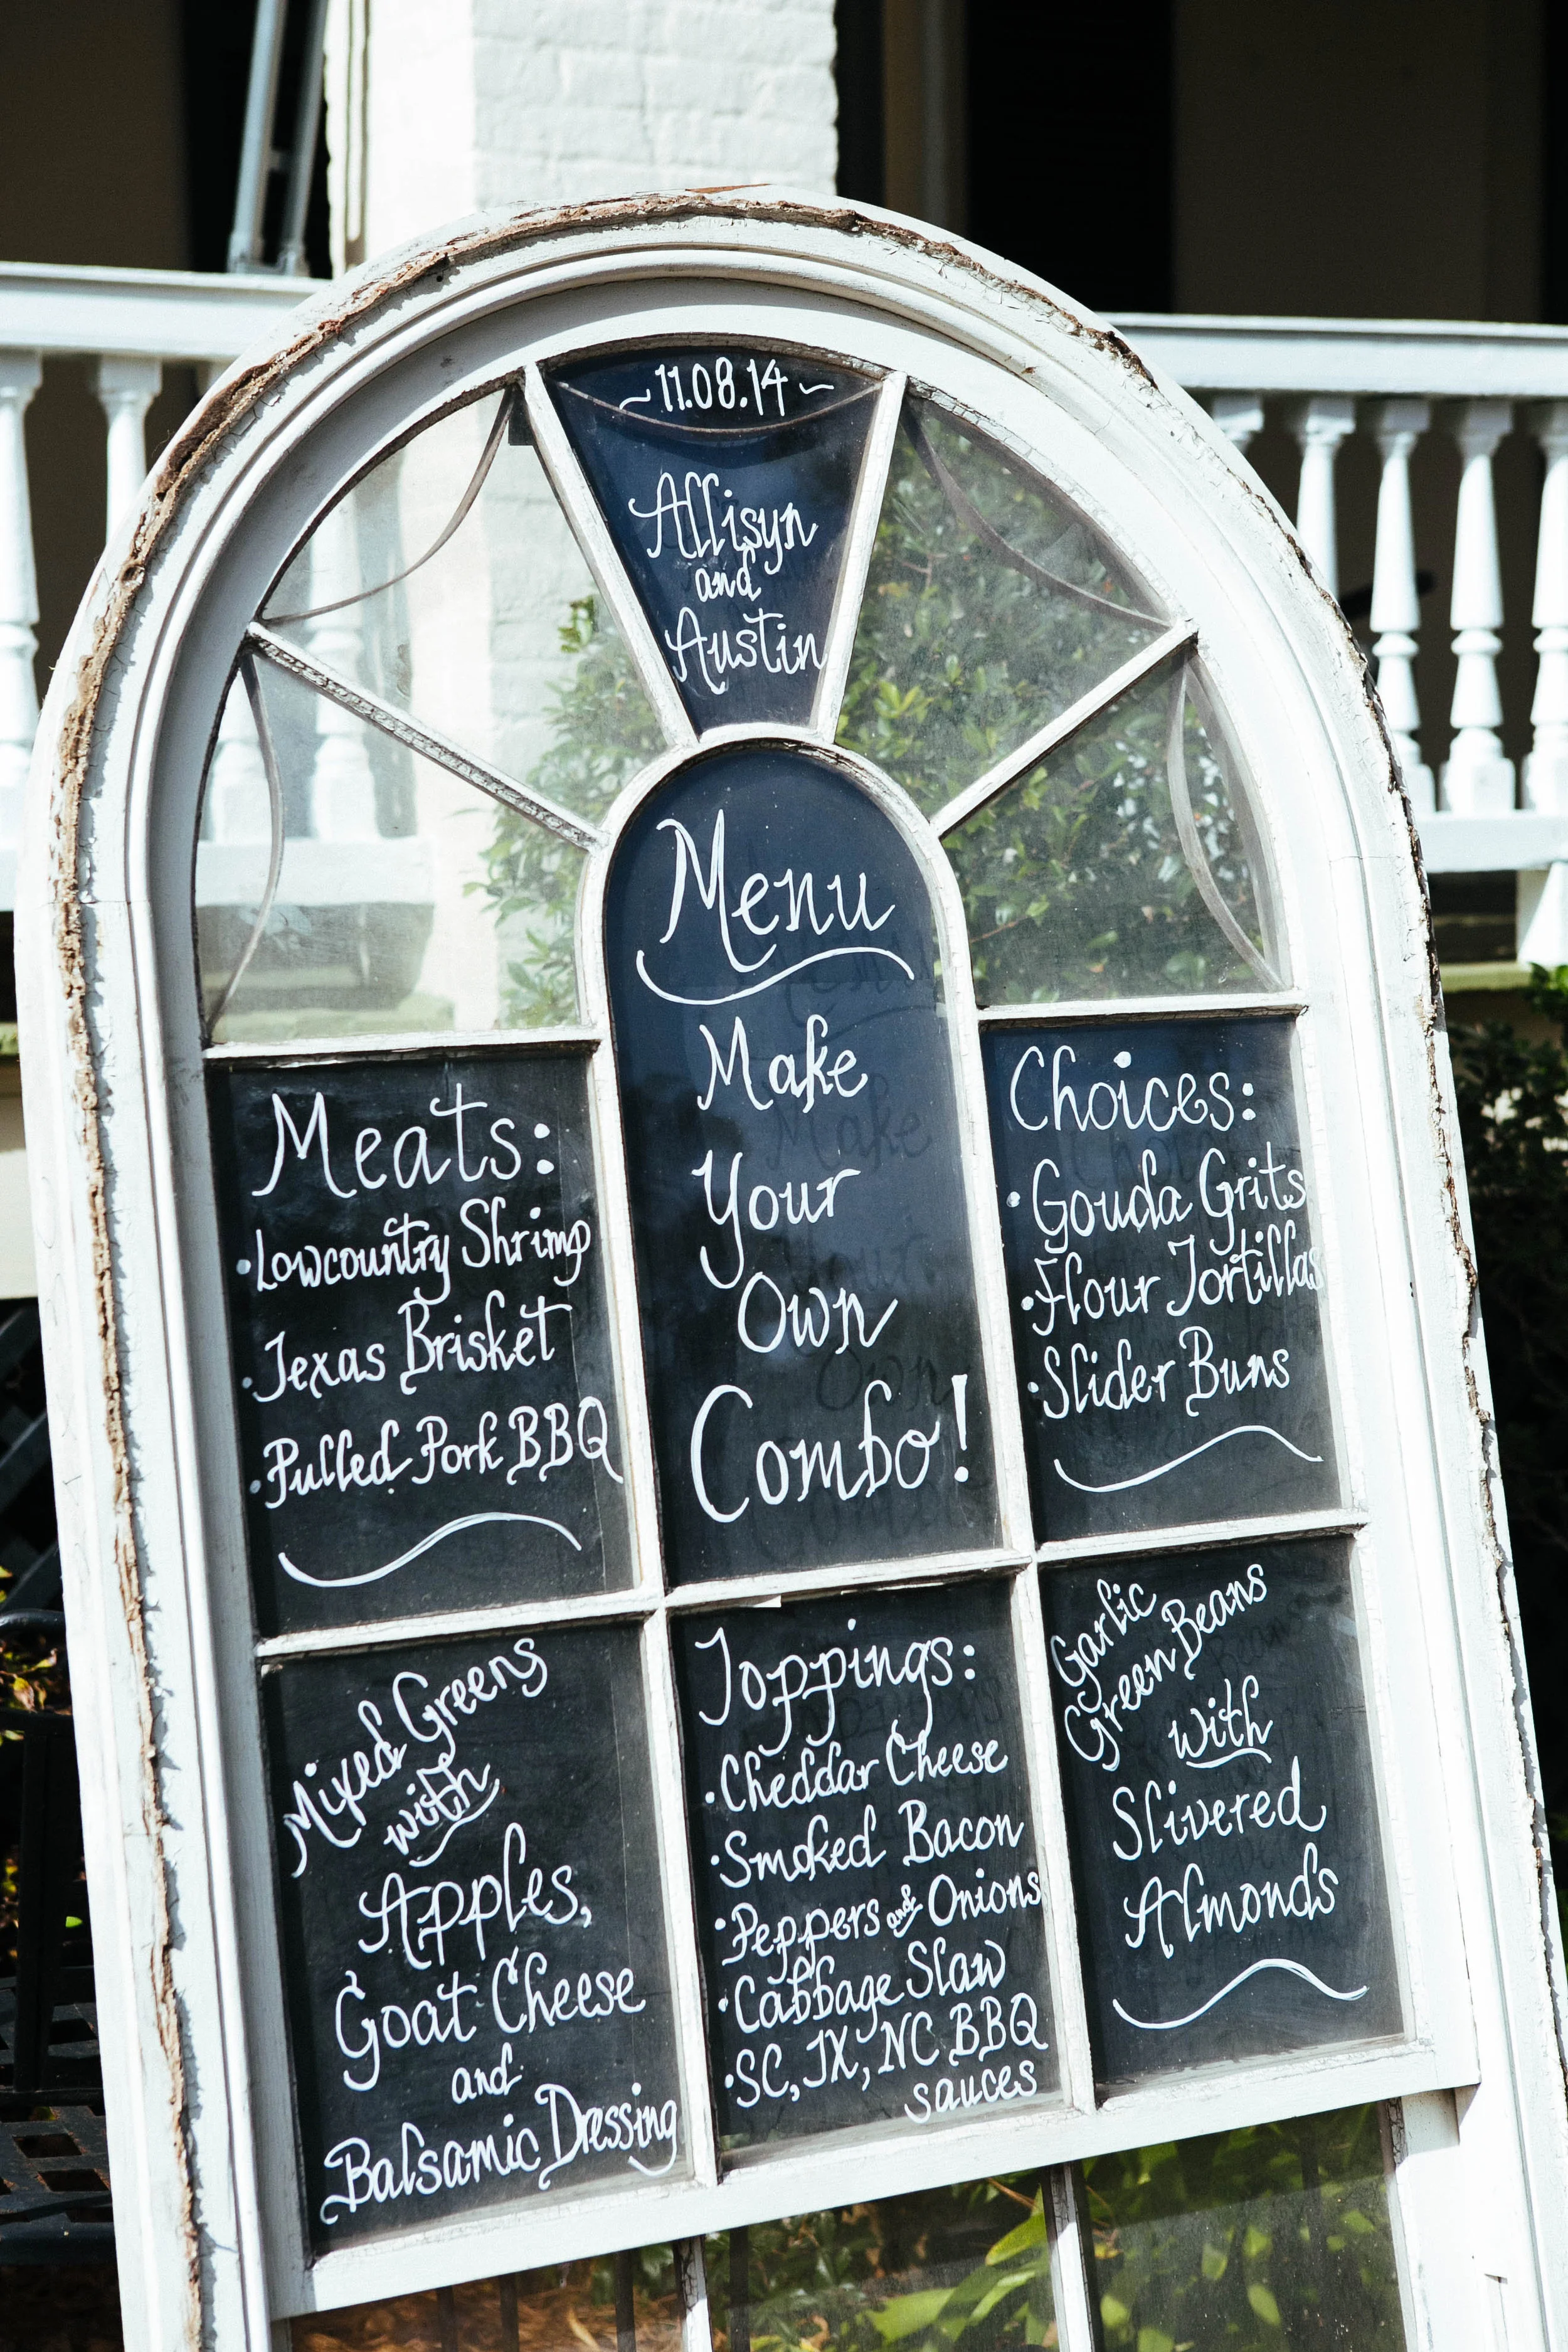 ~11.08.14~
Allisyn
and
Austin
Menu
Make
Your
Own
Combo!
Meats:
•Lowcountry Shrimp
•Texas Brisket
•Pulled Pork BBQ
Choices:
•Gouda Grits
•Flour Tortillas
•Slider Buns
Mixed Greens
with
Apples,
Goat Cheese
and
Balsamic Dressing
Toppings:
•Cheddar Cheese
•Smoked Bacon
•Peppers and Onions
•Cabbage Slaw
•SC, TX, NC BBQ
sauces
Garlic
Green Beans
with
Slivered
Almonds